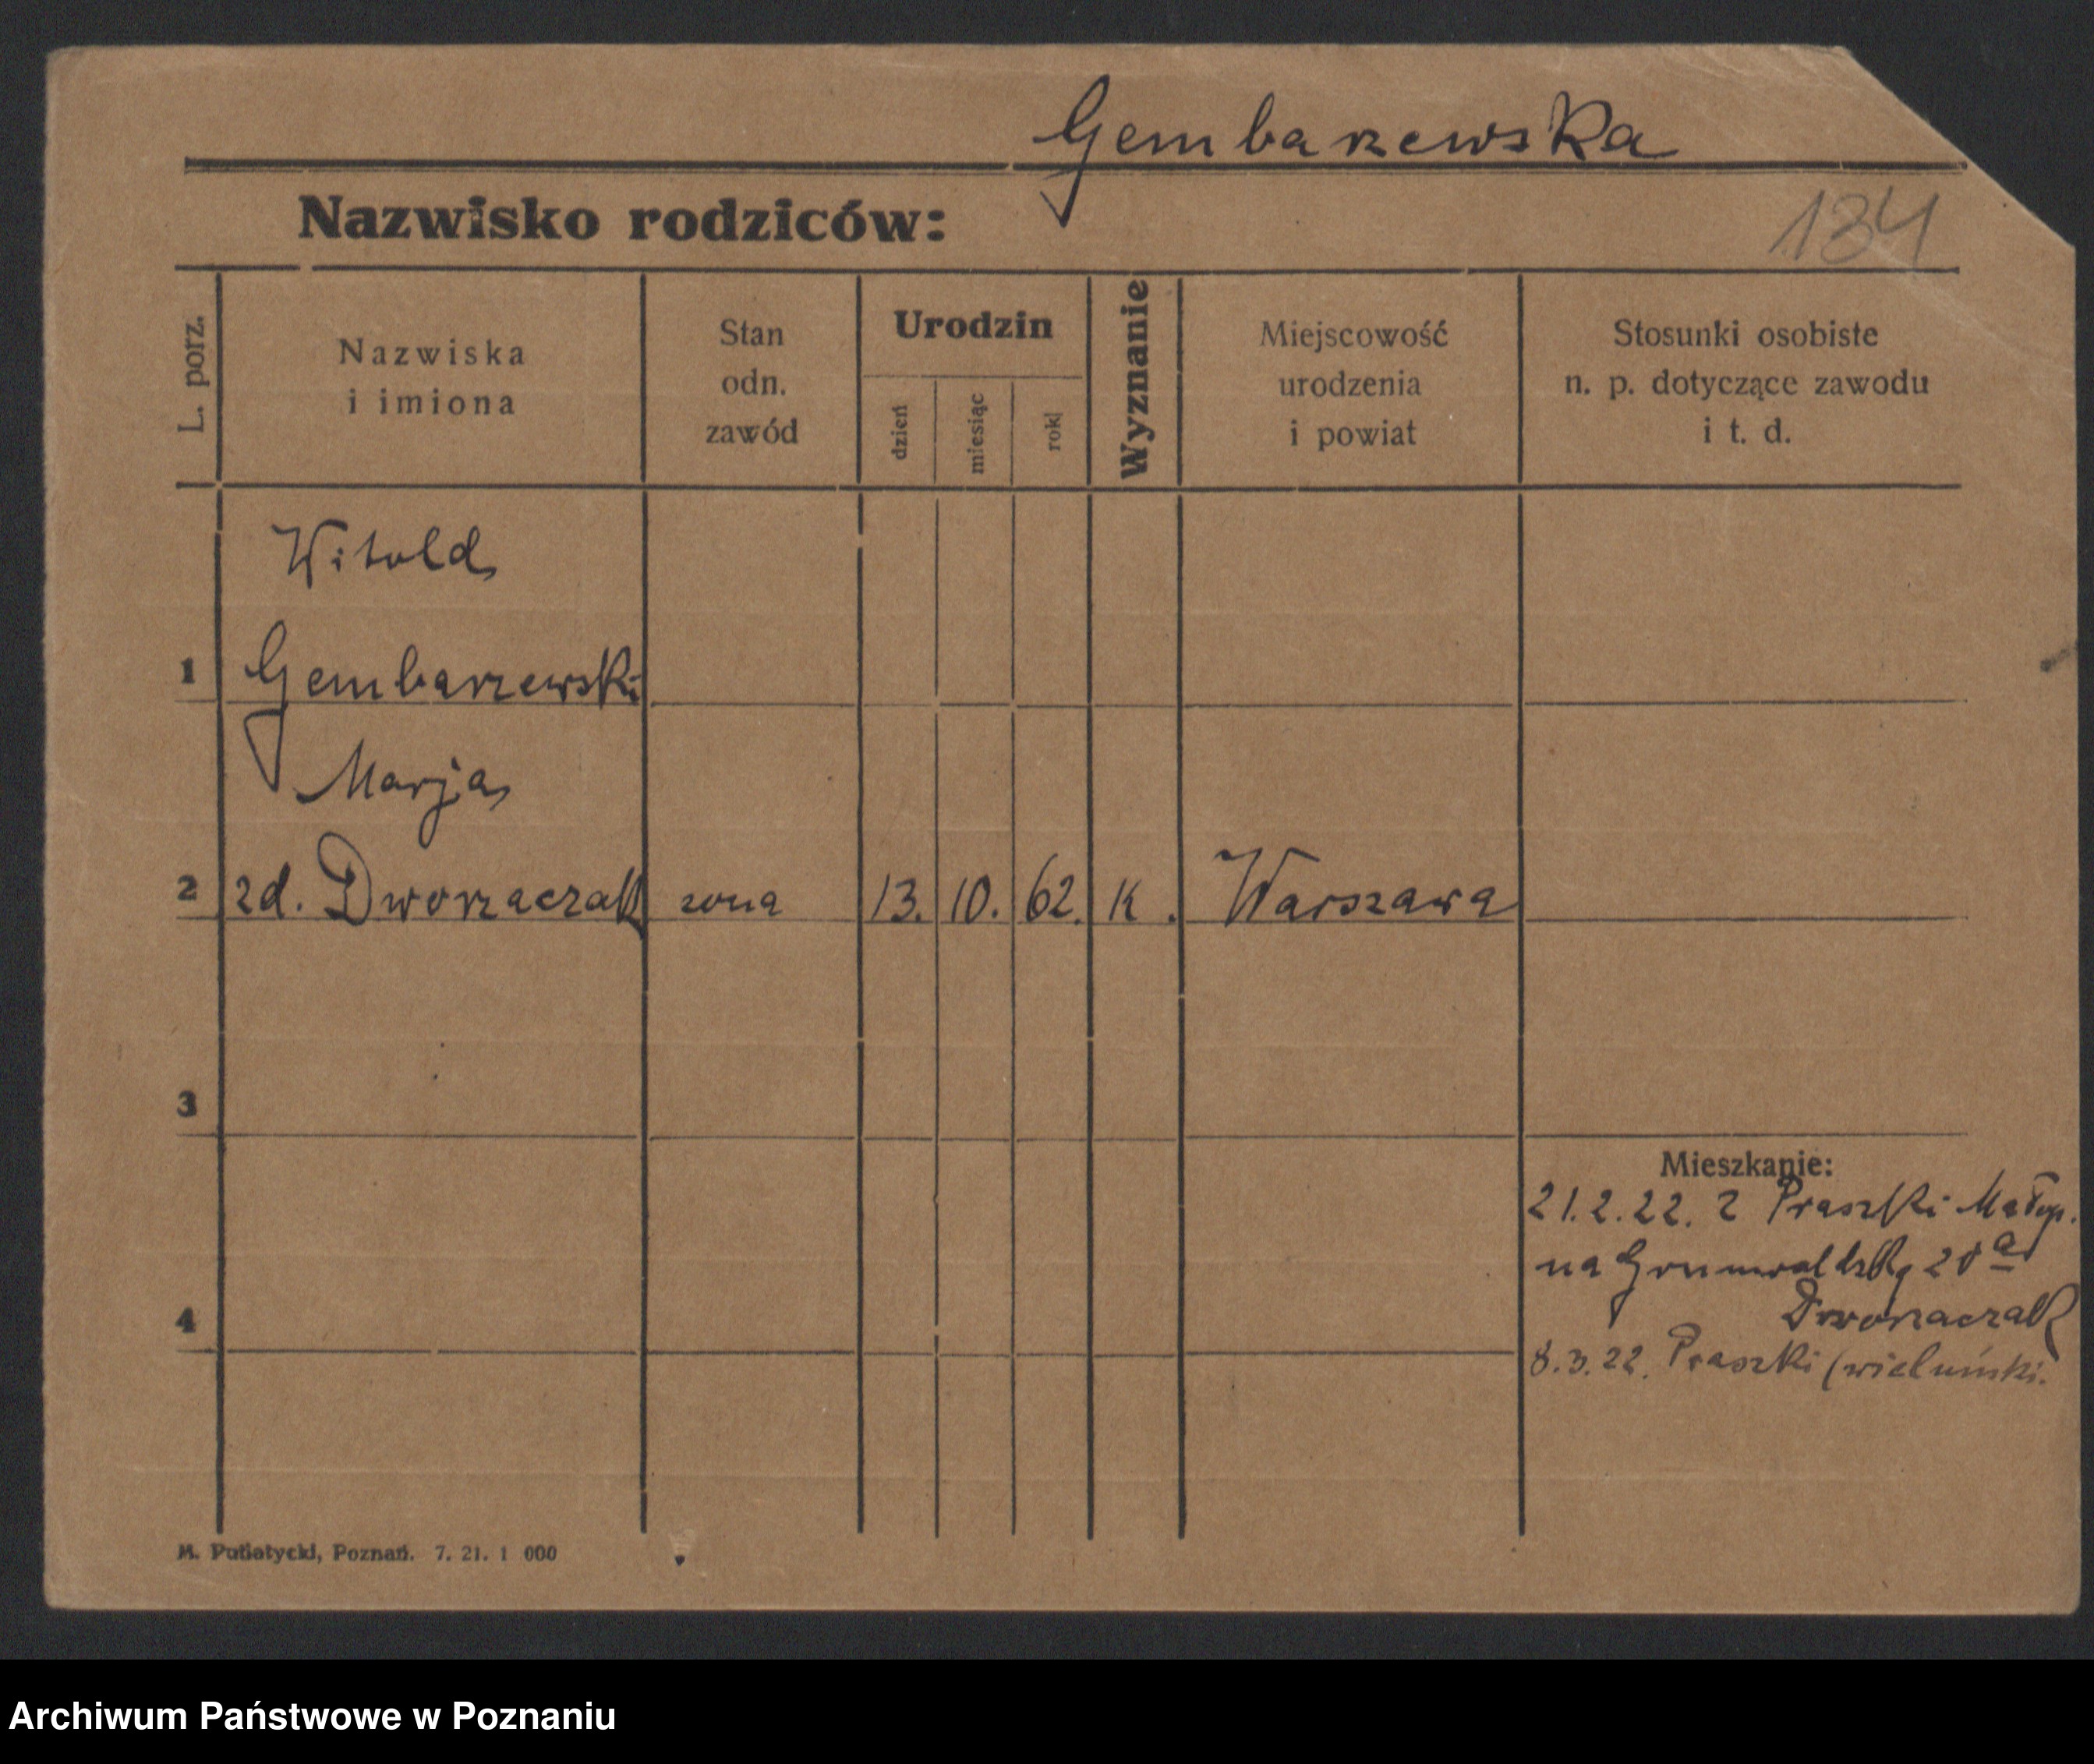 Gembarzewska
184
Nazwisko rodziców:
L. porz.
Nazwiska
i imiona
Stan
odn.
zawód
Urodzin
dzień
miesiąc
rok
Wyznanie
Miejscowość
urodzenia
i powiat
Stosunki osobiste
n. p. dotyczące zawodu
i t. d.
Witold
1 Gembarzewski
Marja
2 zd. Dworzaczak żona 13. 10. 62. K. Warszawa
3
Mieszkanie:
21.2.22. z Praszki Małop.
na Grunwaldzką 20a
Dworzaczak
4
8.3.22. Praszki (wieluński.
M. Putiatycki, Poznań. 7. 21. 1 000
Archiwum Państwowe w Poznaniu